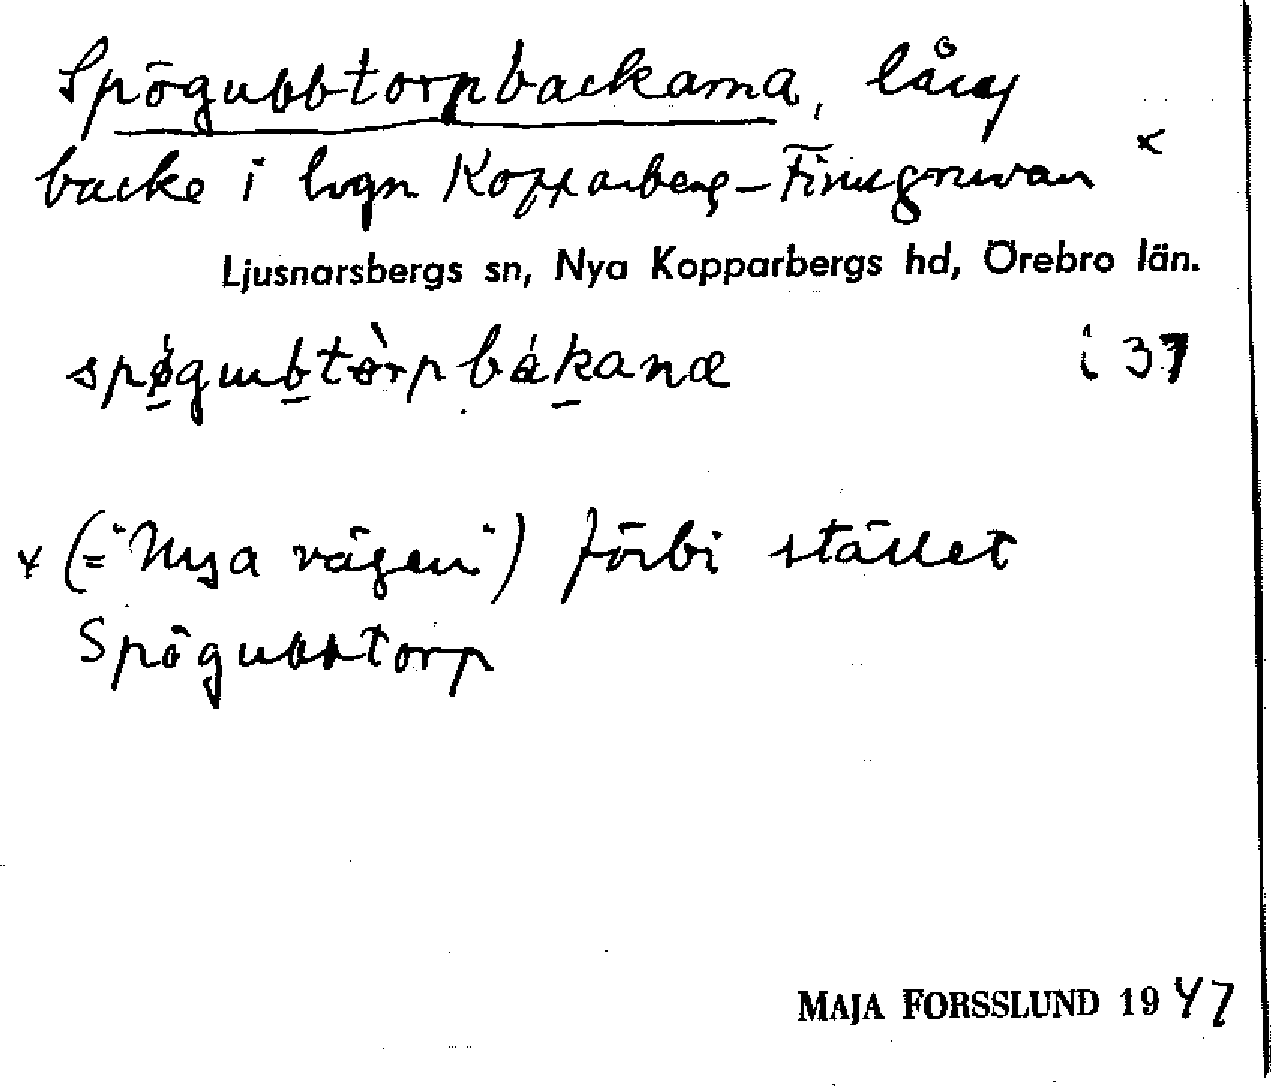 Spögubbtorpbackarna, lång
backe i lvgn Kopparberg–Finngruvan ×
Ljusnarsbergs sn, Nya Kopparbergs hd, Örebro län.
spøgubtòrpbákanæ i 37
× (= "Nya vägen") förbi stället
Spögubbtorp
MAJA FORSSLUND 1947